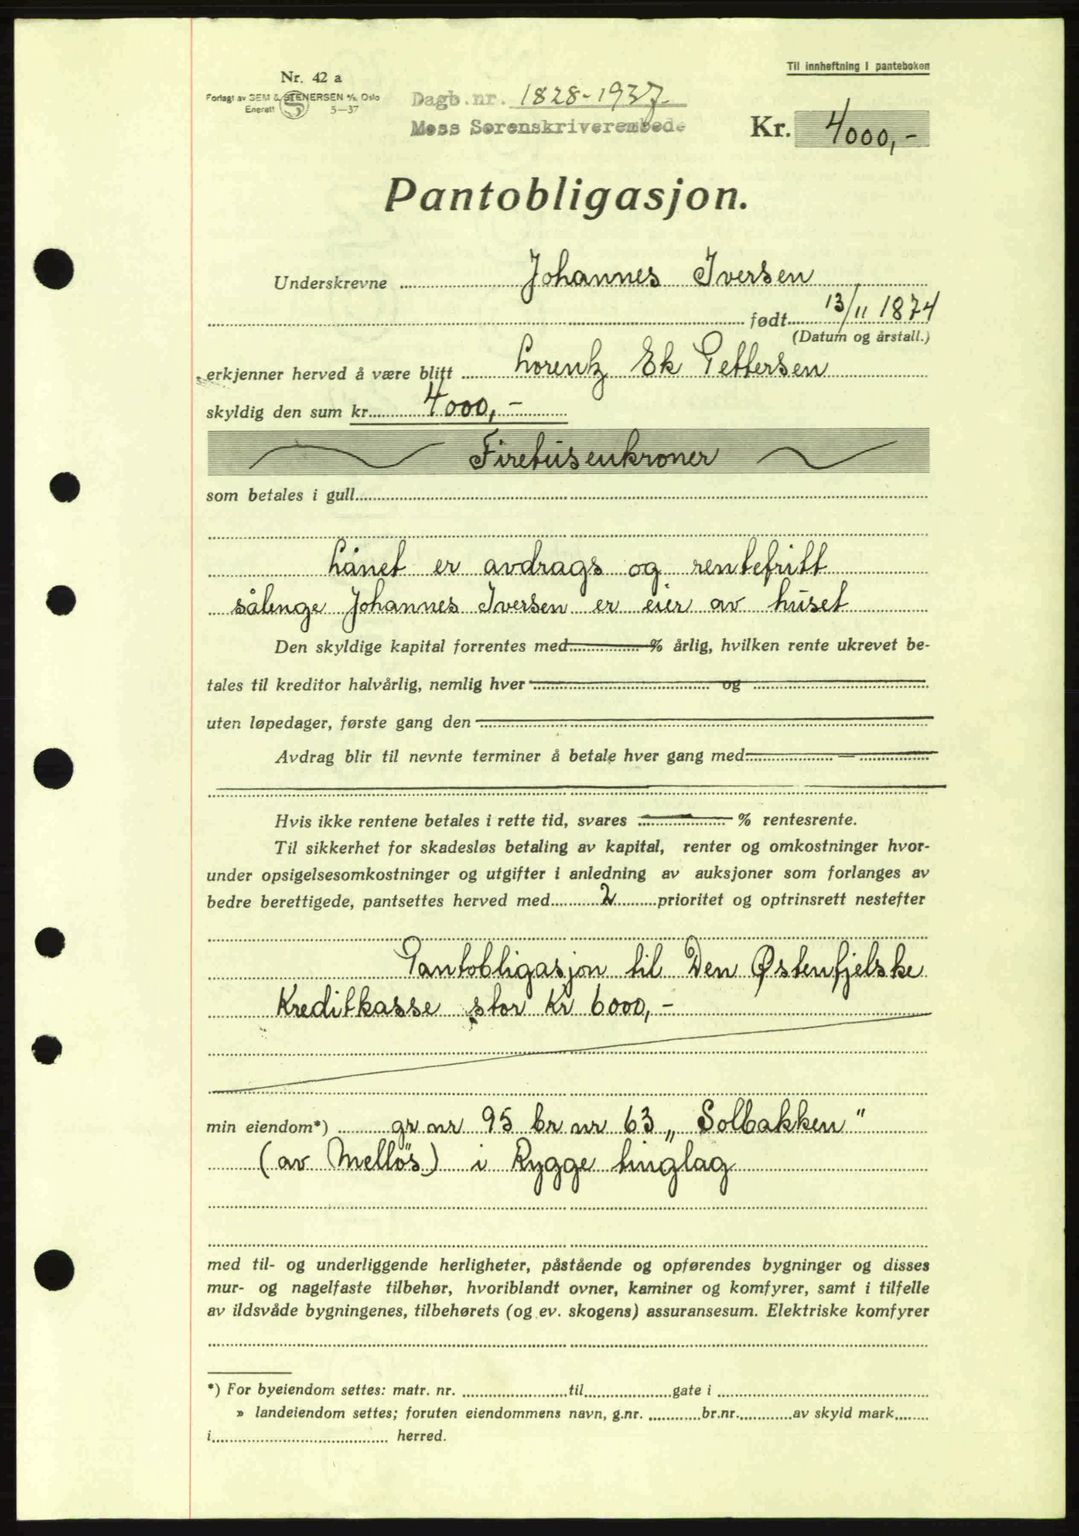 Til innheftning i panteboken
Nr. 42 a
Forlagt av SEM & STENERSEN A/S, Oslo
Enerett 5—37
Dagb.nr. 1828-1937.
Moss Sorenskriverembede
Kr. 4000,-
Pantobligasjon.
Underskrevne Johannes Iversen
født 13/11 1874
(Datum og årstall.)
erkjenner herved å være blitt Lorentz Ek Pettersen
skyldig den sum kr. 4000,-
Firetusenkroner
som betales i gull
Lånet er avdrags og rentefritt
sålenge Johannes Iversen er eier av huset
Den skyldige kapital forrentes med % årlig, hvilken rente ukrevet be-
tales til kreditor halvårlig, nemlig hver og
uten løpedager, første gang den
Avdrag blir til nevnte terminer å betale hver gang med —
Hvis ikke rentene betales i rette tid, svares % rentesrente.
Til sikkerhet for skadesløs betaling av kapital, renter og omkostninger hvor-
under opsigelsesomkostninger og utgifter i anledning av auksjoner som forlanges av
bedre berettigede, pantsettes herved med 2 prioritet og optrinsrett nestefter
Pantobligasjon til Den Østenfjelske
Kreditkasse stor Kr 6000,-
min eiendom*) gr nr 95 br nr 63 „Solbakken"
(av Melløs) i Rygge tinglag
med til- og underliggende herligheter, påstående og opførendes bygninger og disses
mur- og nagelfaste tilbehør, hvoriblandt ovner, kaminer og komfyrer, samt i tilfelle
av ildsvåde bygningenes, tilbehørets (og ev. skogens) assuransesum. Elektriske komfyrer
*) For byeiendom settes: matr. nr. til gate i
» landeiendom settes; foruten eiendommens navn, g.nr. br.nr. av skyld mark
i herred.